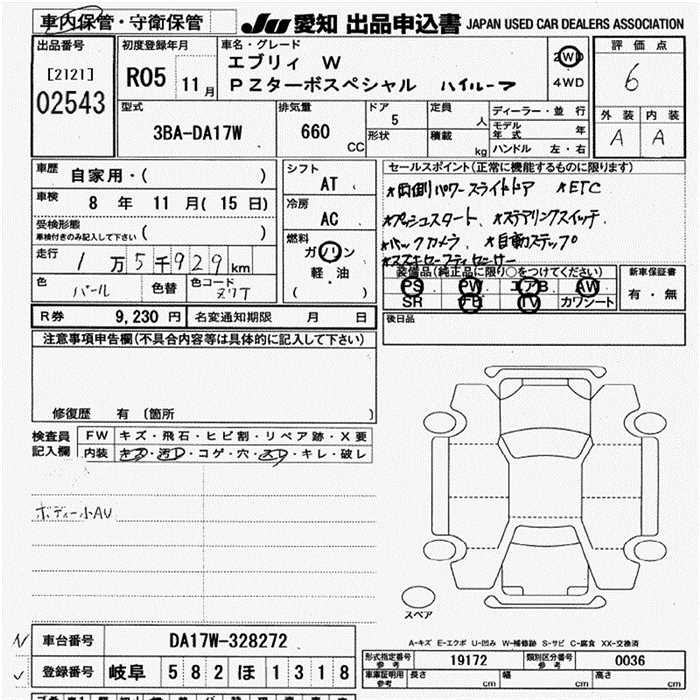 車内保管・守衛保管 JU 愛知 出品申込書 JAPAN USED CAR DEALERS ASSOCIATION
出品番号 [2121] 02543
初度登録年月 R05 11月
車名・グレード エブリィ W
PZターボスペシャル ハイルーフ
2WD
4WD
評価点 6
外装 内装
A A
型式 3BA-DA17W
排気量 660 CC
ドア 5
形状
定員 人
積載 kg
ディーラー・並行
モデル年式 年
ハンドル 左・右
車歴 自家用・( )
車検 8年 11月(15日)
受検形態 車検付きのみ記入して下さい ( )
走行 1万5千929km
色 パール 色替 色コード ZVT
シフト AT
冷房 AC
燃料 ガソリン
軽・油
( )
セールスポイント(正常に機能するものに限ります)
*両側パワースライドドア *ETC
*プッシュスタート、*ステアリングスイッチ、
*バックカメラ、*自動ステップ
*スズキセーフティセンサー
装備品(純正品に限り○をつけてください)
PS PW エアB AW
SR TV カワシート
新車保証書
有・無
R券 9,230円 名変通知期限 月 日
後日品
注意事項申告欄(不具合内容等は具体的に記入して下さい)
修復歴 有 〔箇所 〕
検査員記入欄
FW キズ・飛石・ヒビ割・リペア跡・X要
内装 キズ・汚レ・コゲ・穴・スレ・キレ・破レ
ボディー小AU
スペア
A-キズ E-エクボ U-凹み W-補修跡 S-サビ C-腐食 XX-交換済
車台番号 DA17W-328272
登録番号 岐阜 582 ほ 1318
型式指定番号 参考 19172 類別区分番号 参考 0036
車庫証明用 参考 長さ cm 幅 cm 高さ cm